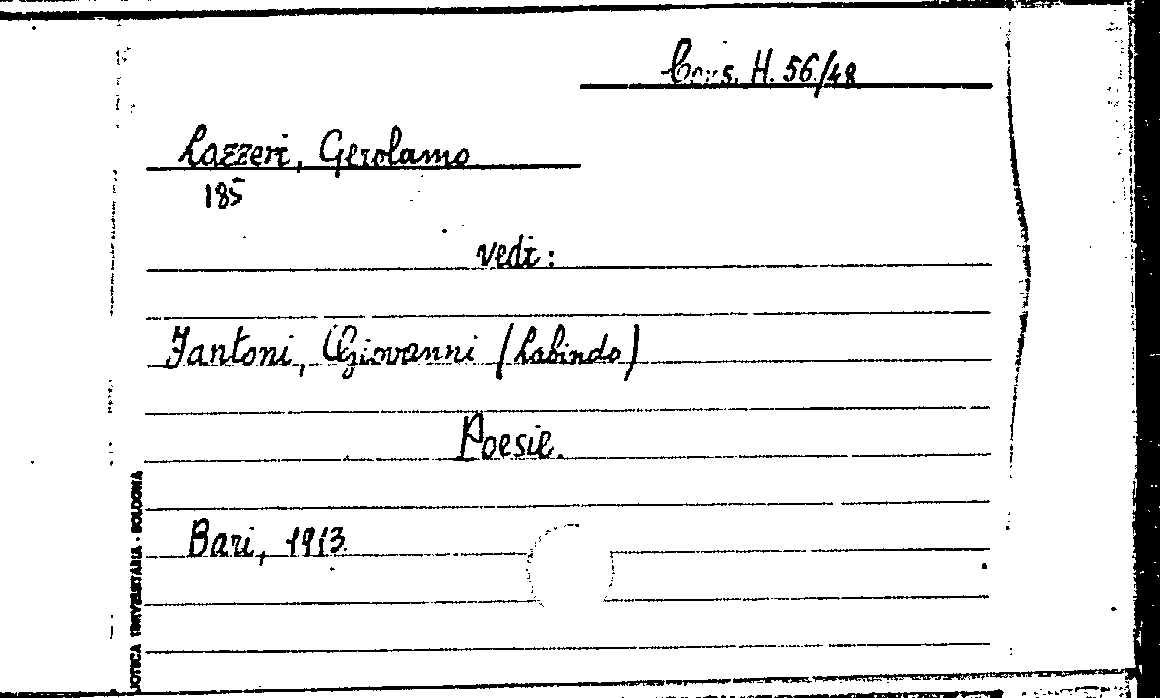 Cons. H. 56/48
Lazzeri, Gerolamo
185
vedi:
Fantoni, Giovanni (Labindo)
Poesie.
Bari, 1913.
UNIVERSITARIA - BOLOGNA